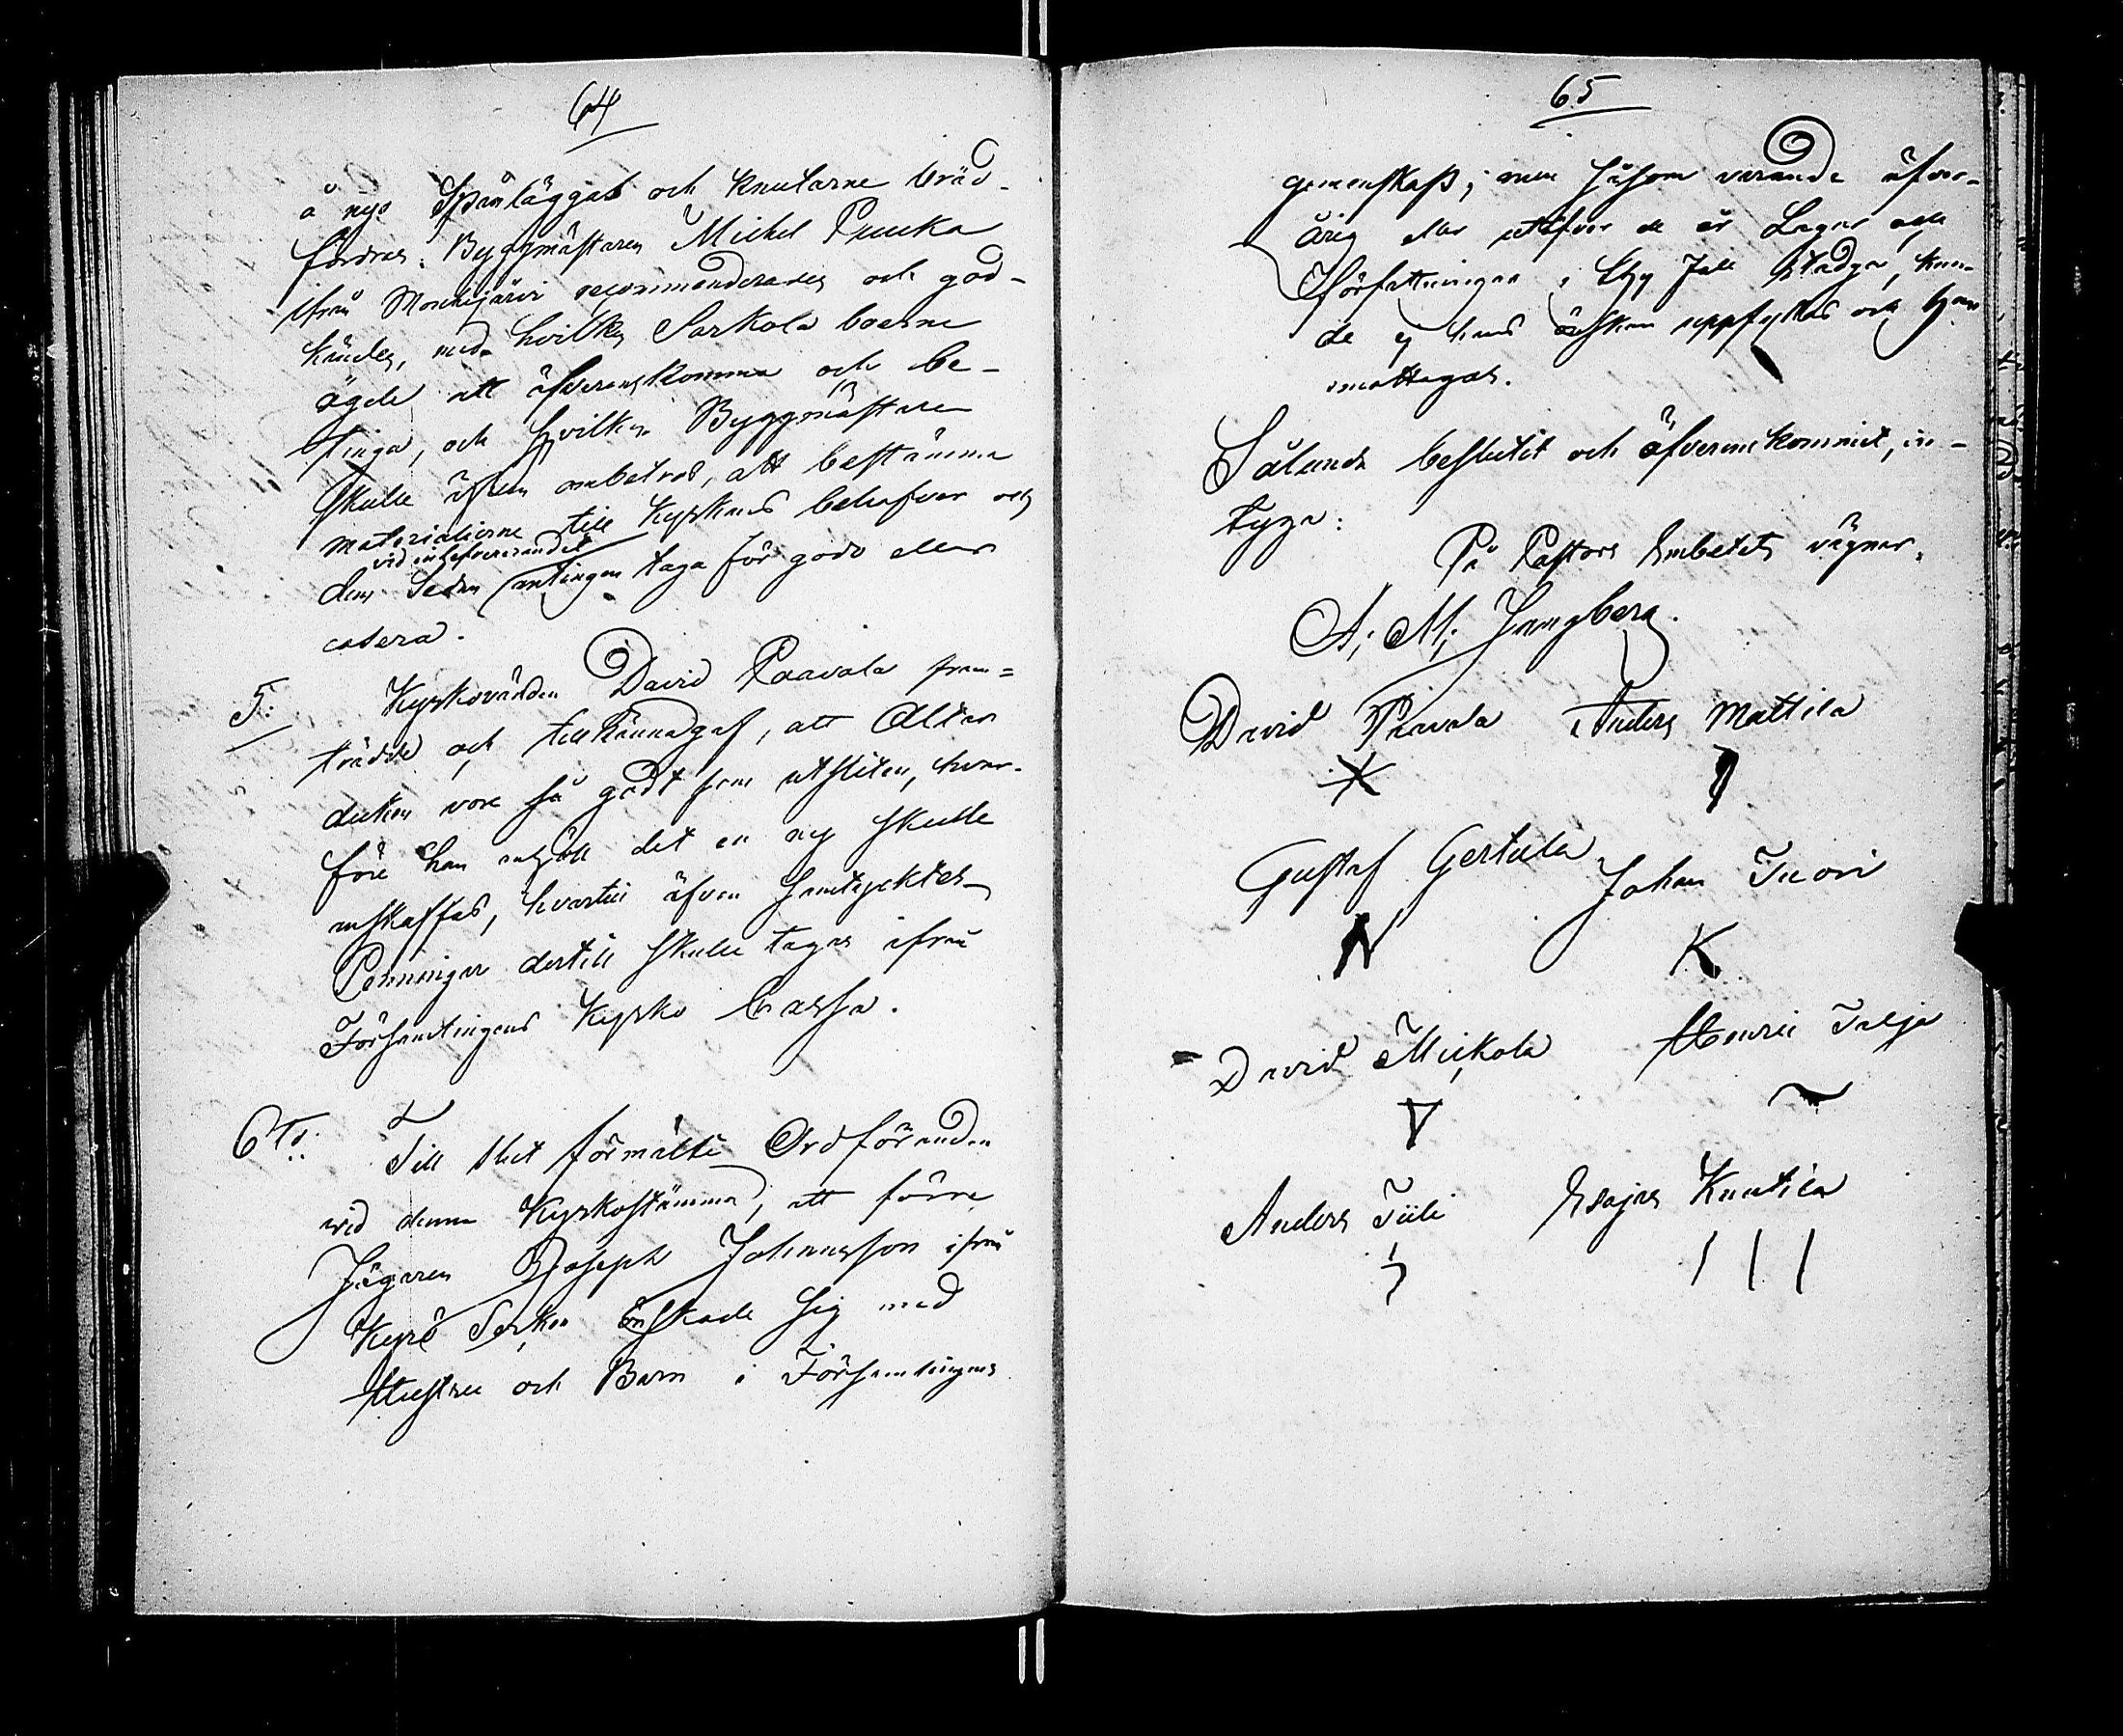 64
å nyo Spånläggas och knutarne bräd-
fordras. Byggmästaren Michel Puucka
ifrån Mouhijärvi recommenderades och god-
kändes, med hvilken Sarkola boerne
ägde att öfverenskomma och be-
tinga, och hvilken Byggmästare
skulle äfven ombetros, att bestämma
materialierne till Kyrkans behofver och
vid inlefvererandet
dem sedan antingen taga för goda eller
casera.
5: Kyrkovärden David Paavola fram=
trädde och tillkännagaf, att Altar
duken vore så godt som utsliten, hvar-
före han anhöll det en ny skulle
anskaffas, hvartill äfven samtycktes
Penningar dertill skulle tagas ifrån
Församlingens Kyrko Cassa.
6to: Till slut förmälte Ordföranden
vid denna Kyrkostämma, att förre
Jägaren Joseph Johansson ifrån
Kyrö Socken önskade sig med
Hustru och Barn i Församlingens
65
gemenskap; men såsom varande öfver-
årig eller utöfver de år Lagar och
Författningar i thy fall stadga, kun-
de ej hans önskan uppfyllas och han
mottagas.
Sålunda beslutit och öfverenskommit, in-
tyga:
På Pastors Embetets vägnar.
A; M; Ljungberg.
David Paavola Anders Mattila
Gustaf Gertula Johan Tuori
N K
David Mickola Henric Talja
Anders Tiili Esajas Knutila